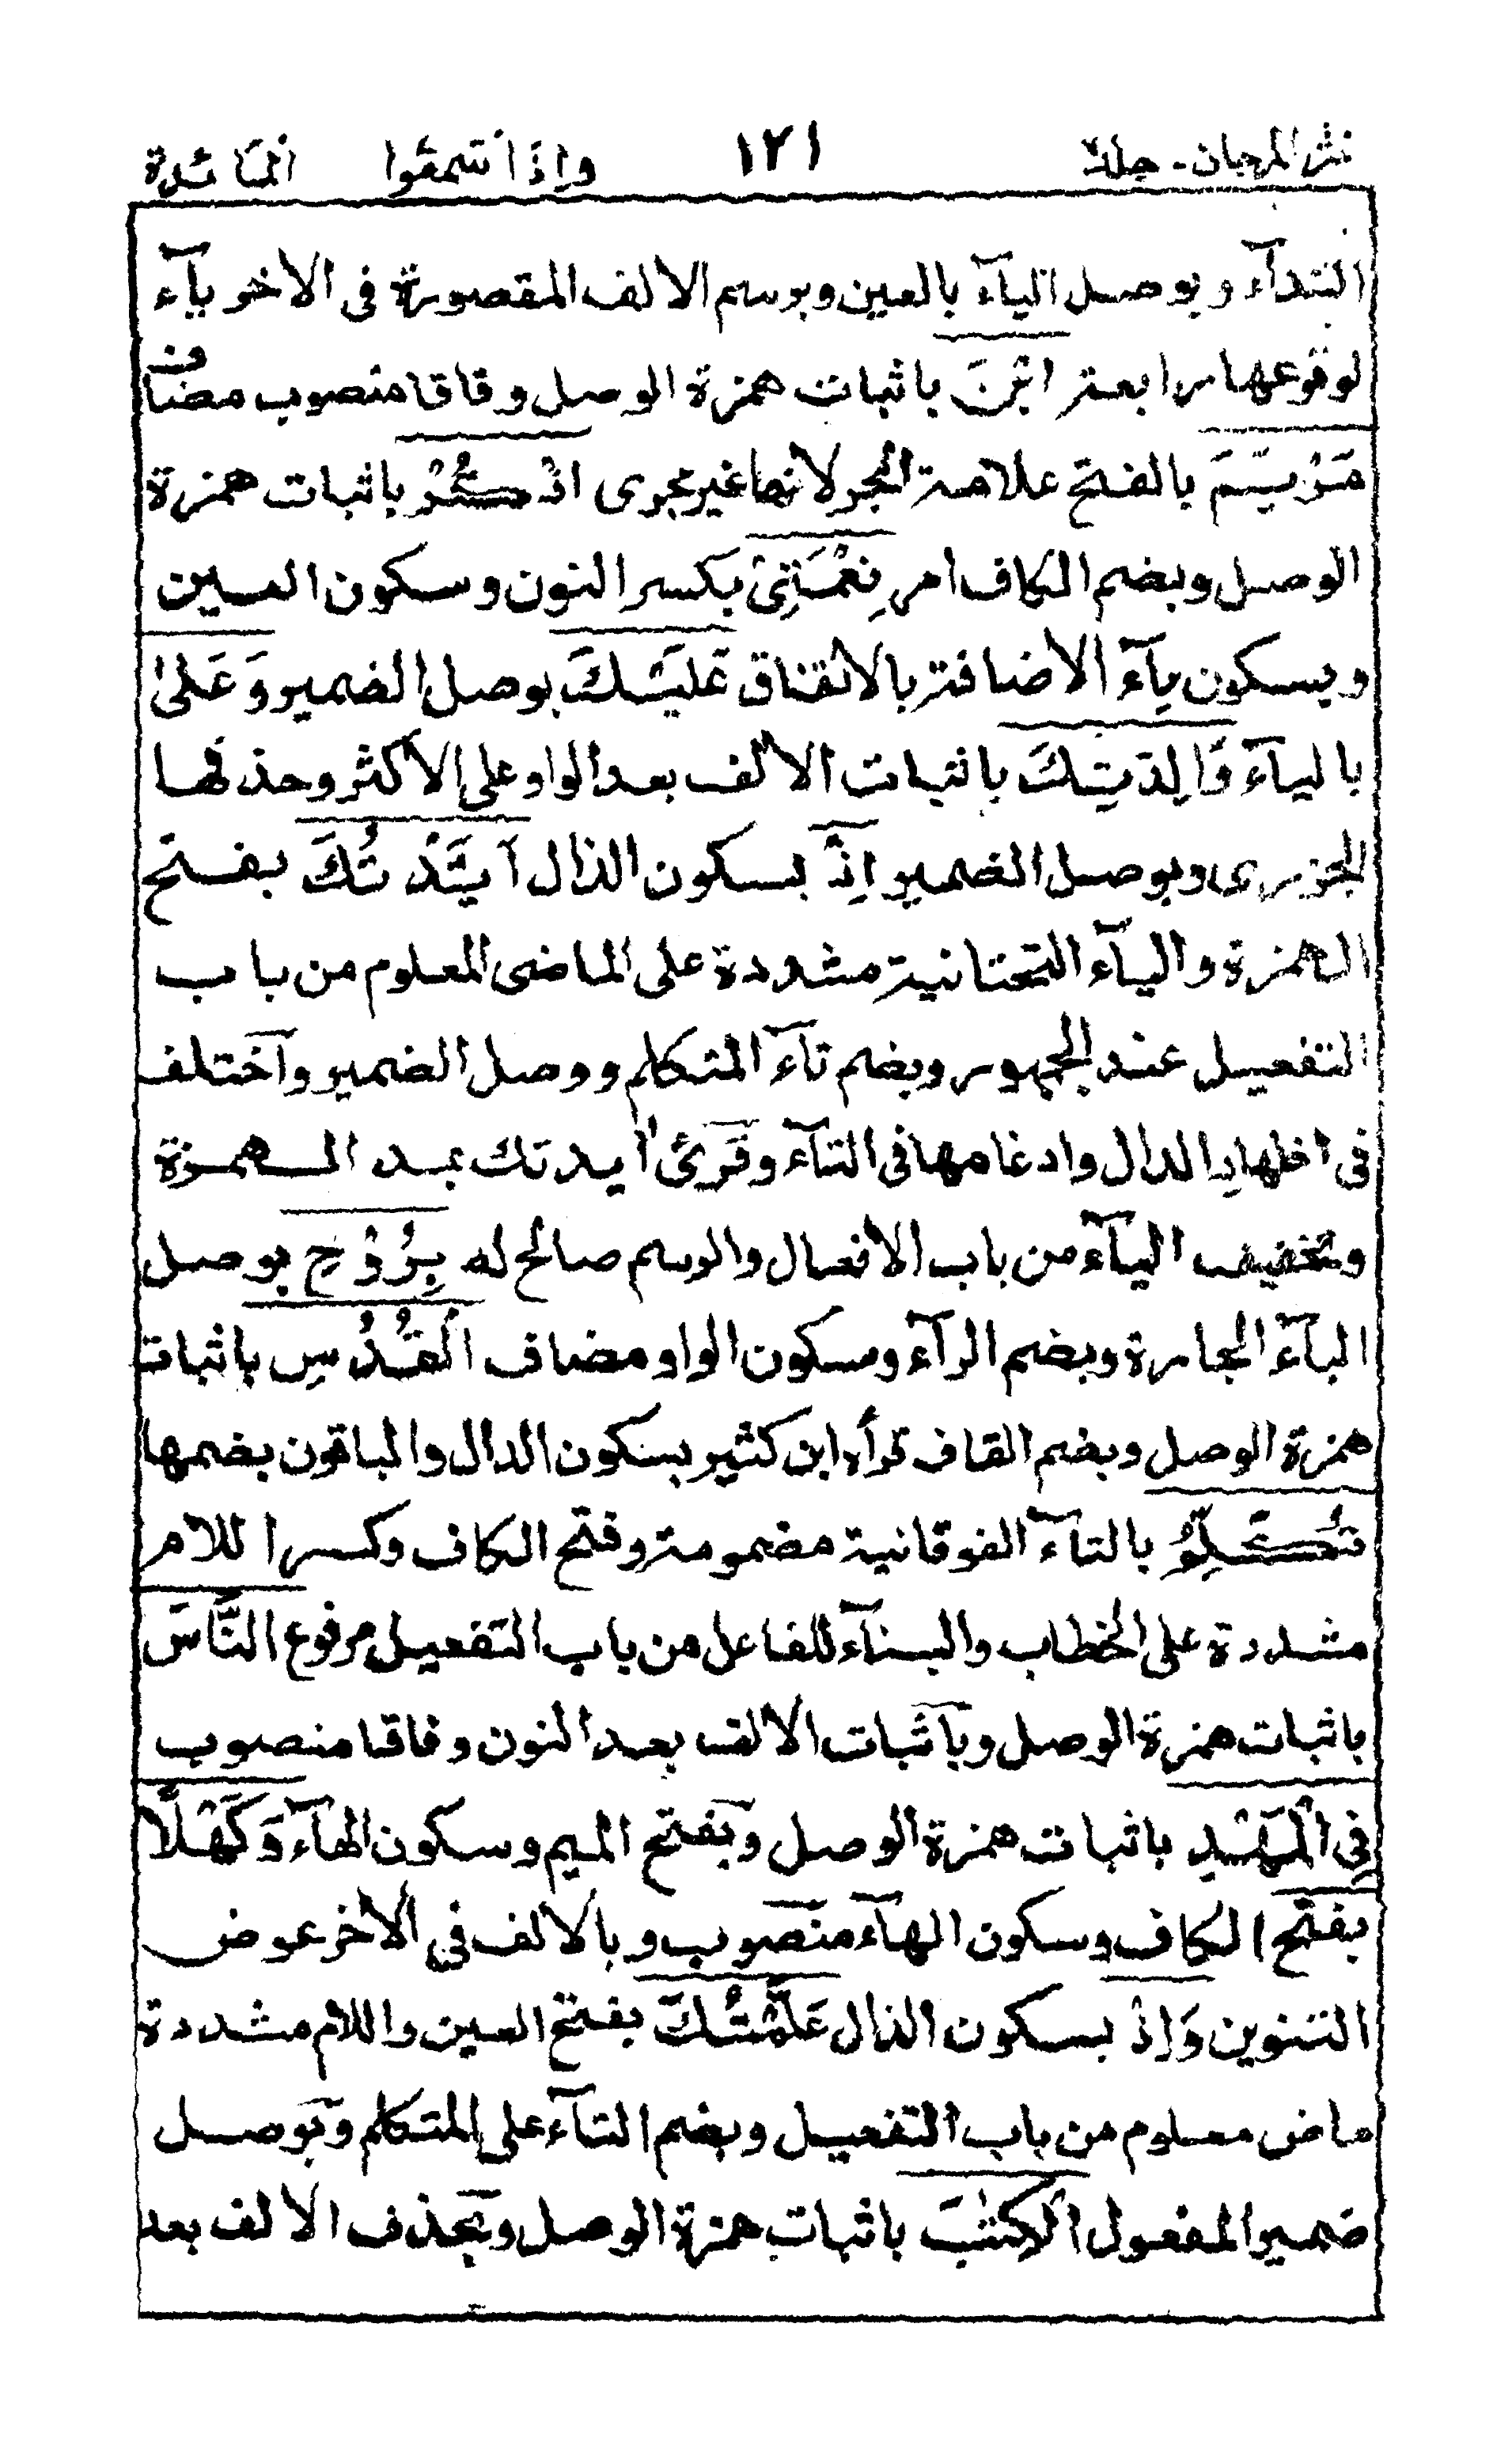 نثر المرجان - جلد ٢ ١٢١ واذا سمعوا المائدة
النداء وبوصل الياء بالعين وبرسم الالف المقصورة في الاخر ياء
لوقوعها رابعة ابْنَ باثبات همزة الوصل وفاقا منصوب مضاف
مَرْيَمَ بالفتح علامة الجر لانها غير مجرى اذْكُرْ باثبات همزة
الوصل وبضم الكاف امر نِعْمَتِيْ بكسر النون وسكون العين
وبسكون ياء الاضافة بالاتفاق عَلَيْكَ بوصل الضمير وَعَلىٰ
بالياء وَالِدَتِكَ باثبات الالف بعد الواو على الاكثر وحذفها
الجزرى وبوصل الضمير اِذْ بسكون الذال اَيَّدْتُكَ بفتح
الهمزة والياء التحتانية مشددة على الماضى المعلوم من باب
التفعيل عند الجمهور وبضم تاء المتكلم ووصل الضمير واختلف
في اظهار الدال وادغامها في التاء وقرئ آيدتك بمد الهمزة
وتخفيف الياء من باب الافعال والرسم صالح له بِرُوْحِ بوصل
الباء الجارة وبضم الراء وسكون الواو مضاف الْقُدُسِ باثبات
همزة الوصل وبضم القاف قرأه ابن كثير بسكون الدال والباقون بضمها
تُكَلِّمُ بالتاء الفوقانية مضمومة وفتح الكاف وكسر اللام
مشددة على الخطاب والبناء للفاعل من باب التفعيل مرفوع النَّاسَ
باثبات همزة الوصل وباثبات الالف بعد النون وفاقا منصوب
فِي الْمَهْدِ باثبات همزة الوصل وبفتح الميم وسكون الهاء وَكَهْلًا
بفتح الكاف وسكون الهاء منصوب وبالالف في الاخر عوض
التنوين وَاِذْ بسكون الذال عَلَّمْتُكَ بفتح العين واللام مشددة
ماض معلوم من باب التفعيل وبضم التاء على المتكلم وبوصل
ضمير المفعول الْكِتٰبَ باثبات همزة الوصل وبحذف الالف بعد